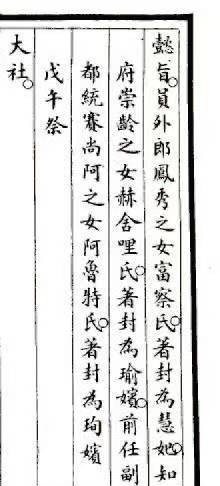 懿旨員外郎鳳秀之女富察氏著封為慧妃知
府崇齡之女赫舍哩氏著封為瑜嬪前任副
都統賽尚阿之女阿魯特氏著封為珣嬪
戊午祭
大社